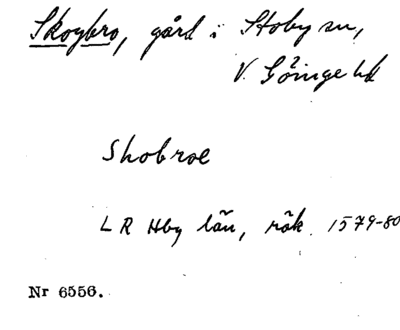 Skogbro, gård i Stoby sn,
V. Göinge hd
Skobroe
LR Hby län, räk. 1579-80
Nr 6556.